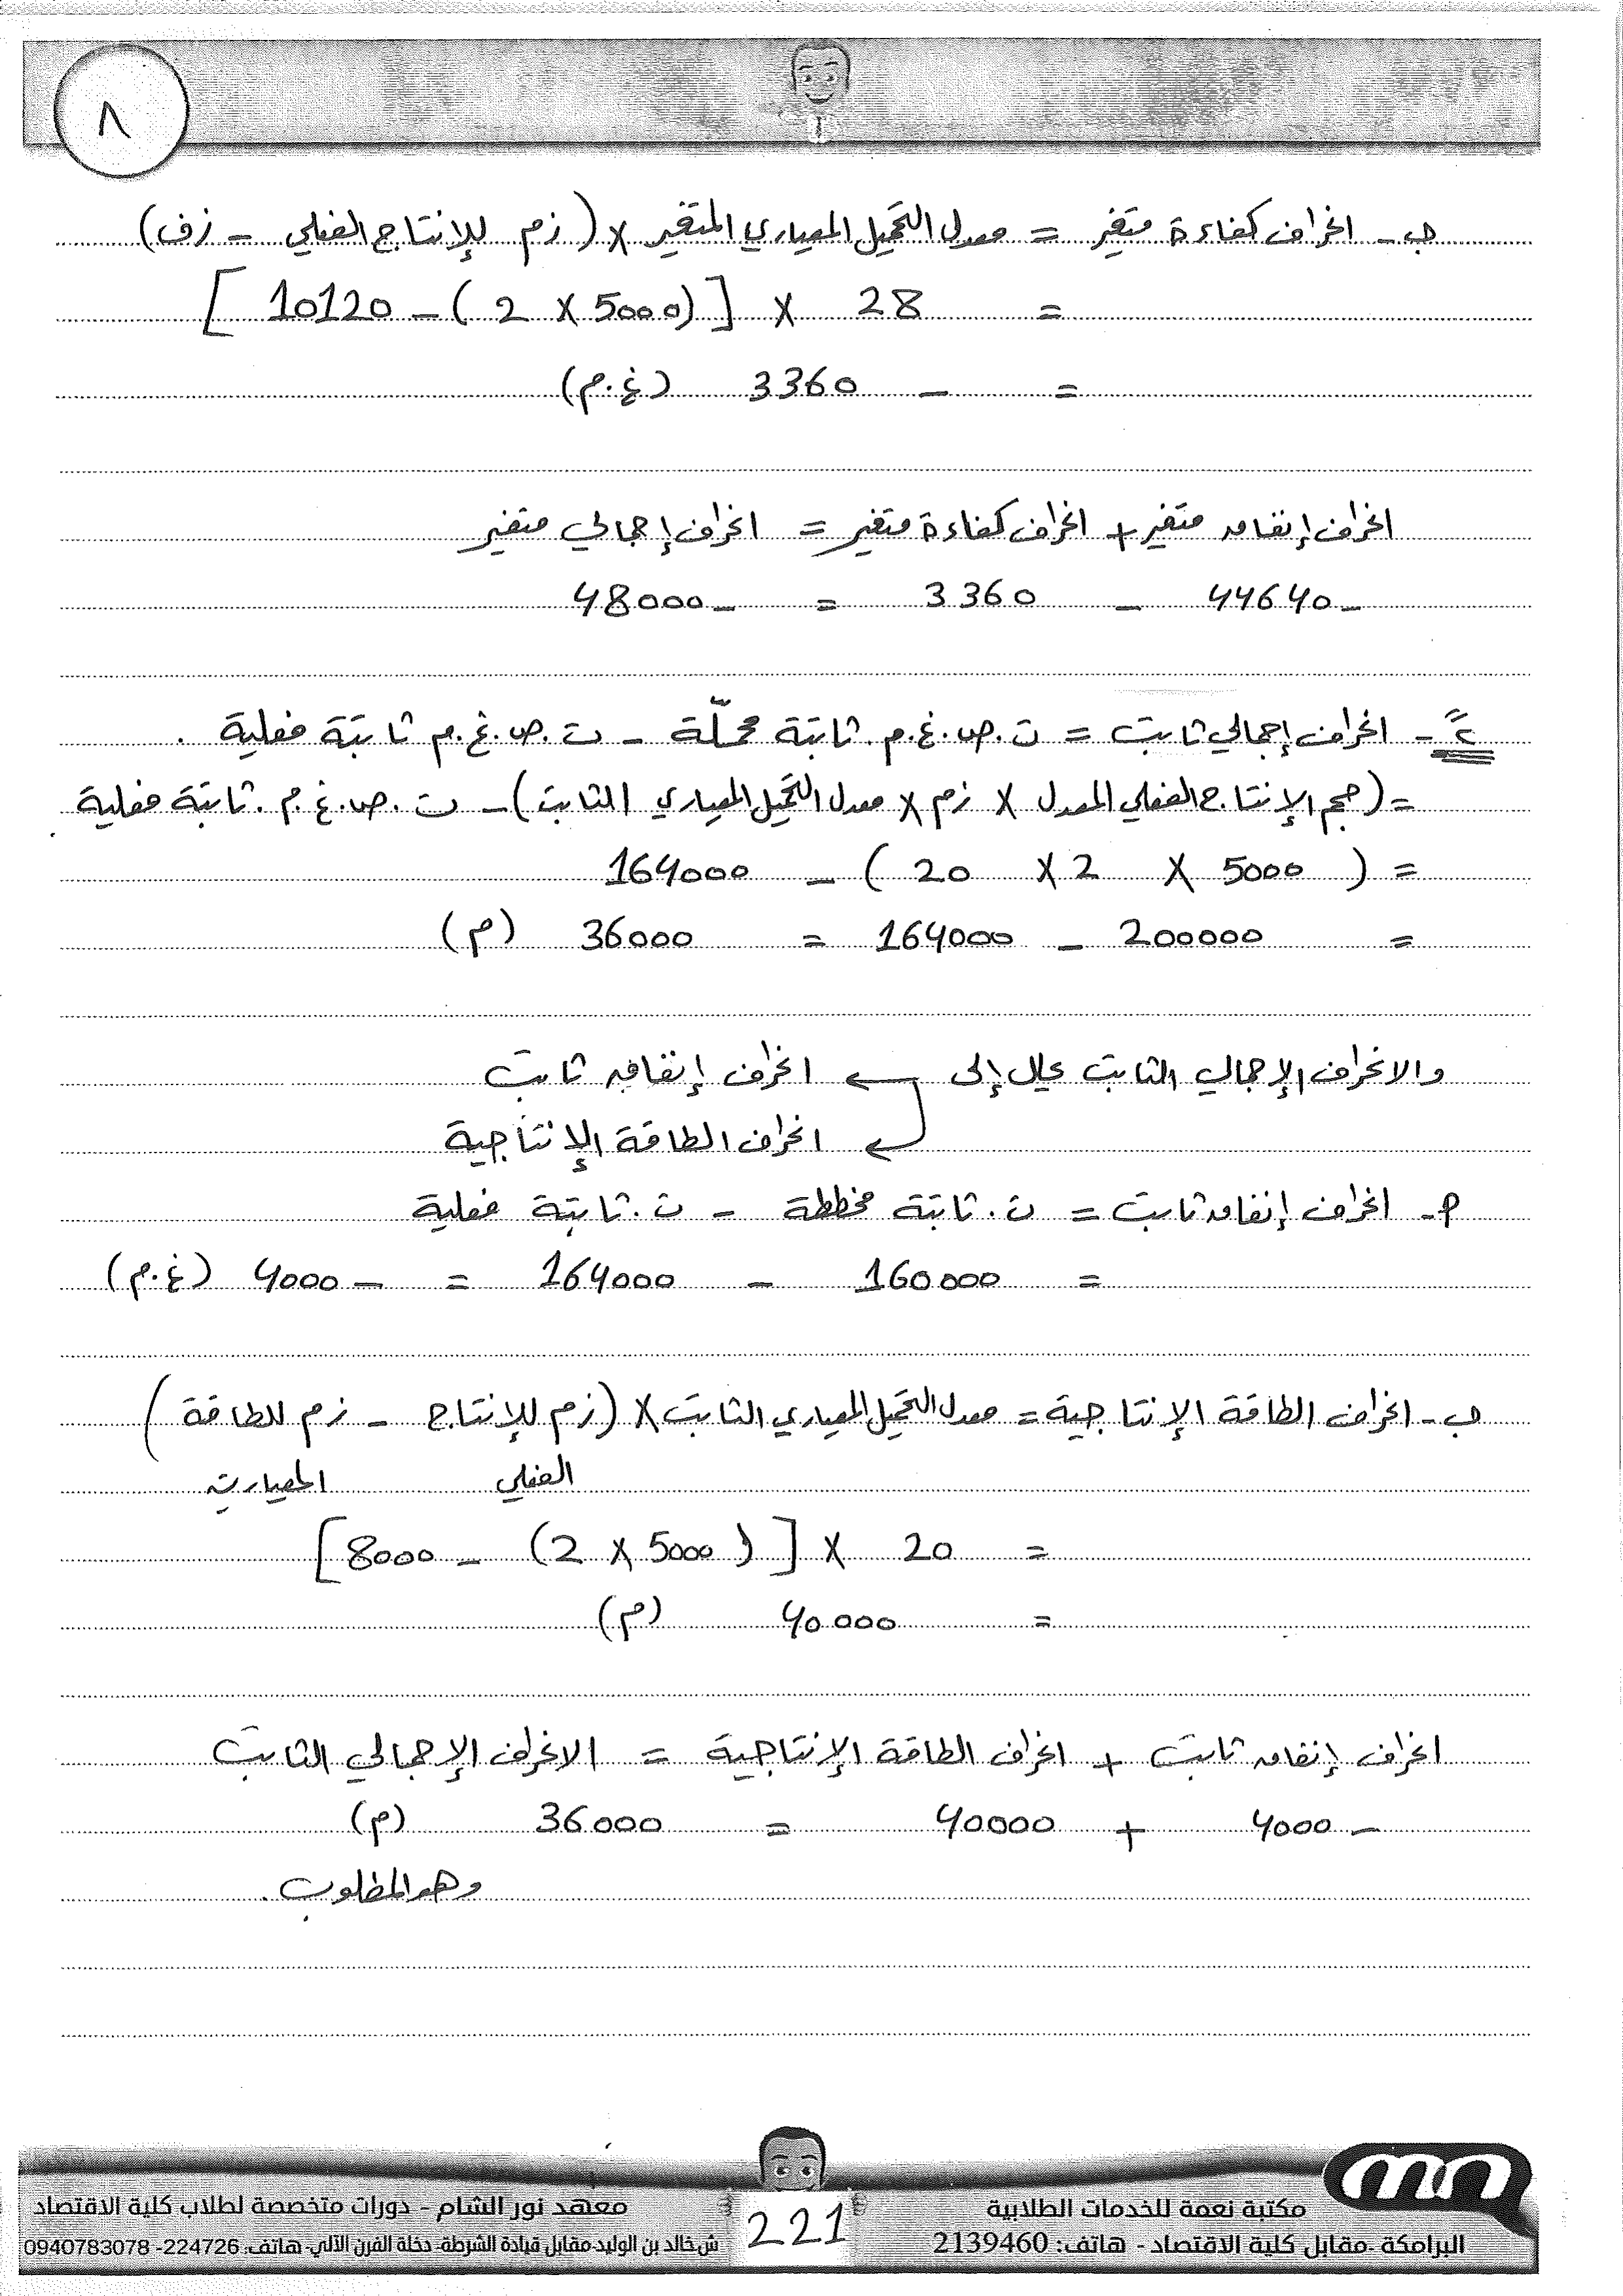 ٨
ب - انحراف كفاءة متغير = معدل التحميل المعياري المتغير × (زم للإنتاج الفعلي - زف)
= 28 × [(5000 × 2) - 10120]
= - 3360 (غ.م)
انحراف إنفاق متغير + انحراف كفاءة متغير = انحراف إجمالي متغير
-44640 - 3360 = -48000
2ً - انحراف إجمالي ثابت = ت.ص.غ.م. ثابتة محمّلة - ت.ص.غ.م ثابتة فعلية.
= (حجم الإنتاج الفعلي المعدل × زم × معدل التحميل المعياري الثابت) - ت.ص.غ.م. ثابتة فعلية.
= (5000 × 2 × 20) - 164000
= 200000 - 164000 = 36000 (م)
والانحراف الإجمالي الثابت يحلل إلى ← انحراف إنفاق ثابت
← انحراف الطاقة الإنتاجية
م - انحراف إنفاق ثابت = ت. ثابتة مخططة - ت. ثابتة فعلية
= 160000 - 164000 = -4000 (غ.م)
ب - انحراف الطاقة الإنتاجية = معدل التحميل المعياري الثابت × (زم للإنتاج - زم للطاقة)
الفعلي المعيارية
= 20 × [(5000 × 2) - 8000]
= 40000 (م)
انحراف إنفاق ثابت + انحراف الطاقة الإنتاجية = الانحراف الإجمالي الثابت
-4000 + 40000 = 36000 (م)
وهو المطلوب.
مكتبة نعمة للخدمات الطلابية
البرامكة -مقابل كلية الاقتصاد - هاتف: 2139460
221
معهد نور الشام - دورات متخصصة لطلاب كلية الاقتصاد
ش خالد بن الوليد-مقابل قيادة الشرطة- دخلة الفرن الآلي- هاتف: 224726- 0940783078